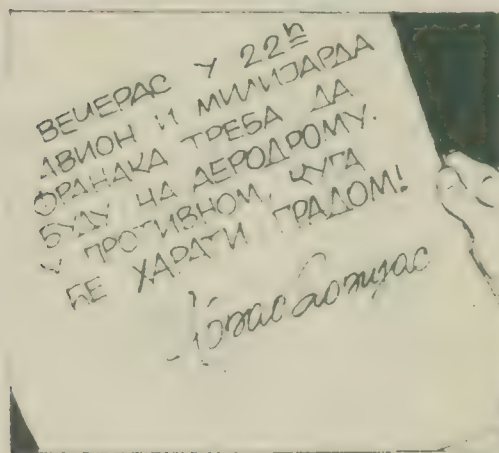 ВЕЧЕРАС У 22h
АВИОН И МИЛИЈАРДА
ФРАНАКА ТРЕБА ДА
БУДУ НА АЕРОДРОМУ.
У ПРОТИВНОМ, КУГА
ЋЕ ХАРАТИ ГРАДОМ!